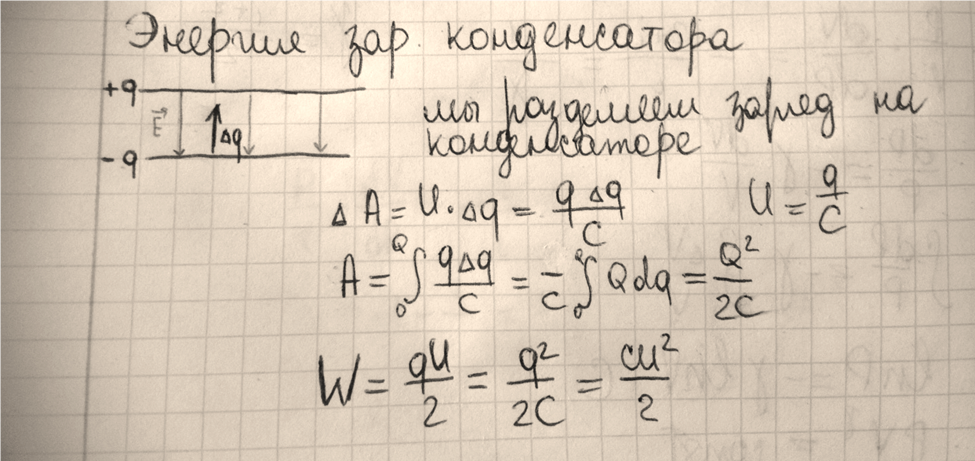 Энергия зар. конденсатора
+q
E⃗ Δq
-q
мы разделяем заряд на
конденсаторе
ΔA = U·Δq = qΔq/C U = q/C
A = ₀∫^Q qΔq/C = –/C ₀∫^Q Qdq = Q²/2C
W = qU/2 = q²/2C = CU²/2